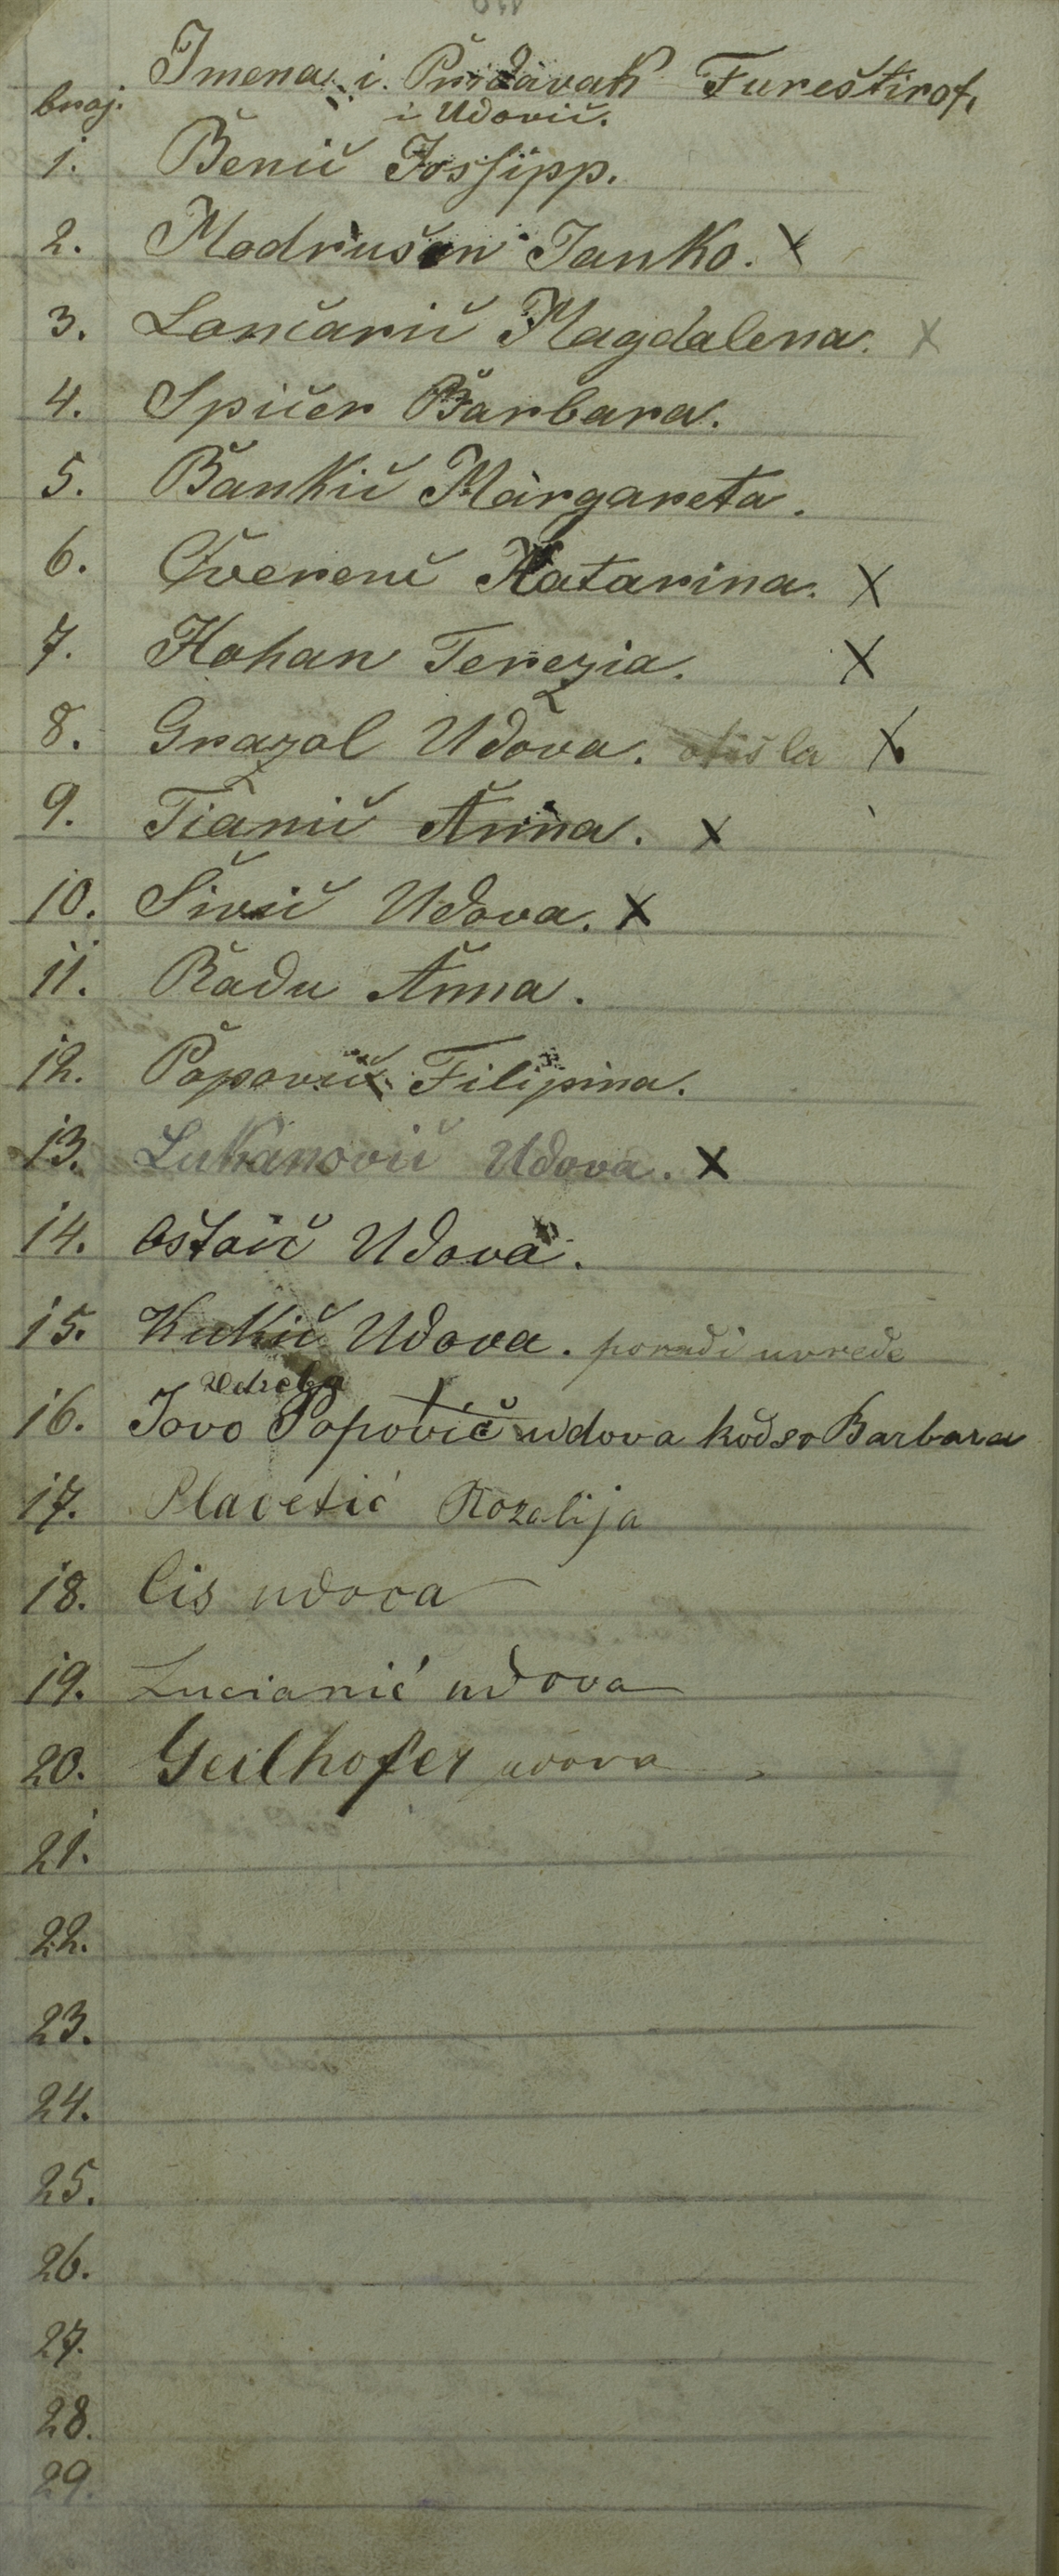 Imena i Pridavak Fureštirof,
broj. i Udovič.
1. Benič Jossipp.
2. Modrušan Janko. X
3. Lončarič Magdalena. X
4. Spičer Barbara.
5. Bankič Margareta.
6. Katarina. X
7. Hohan Terezia. X
8. Grazol Udova. otišla X
9. Tianič Anna. X
10. Sivič Udova. X
11. Radu Anna.
12. Popovič Filipina.
13. Lukanovič Udova. X
14. Ostoič Udova.
15. Kukič Udova. poradi uvrede
16. Jovo Popovič udova Barbara
17. Placetić Rozalija
18. Cis udova
19. Lucianić udova
20. Geilhofer udova
21.
22.
23.
24.
25.
26.
27.
28.
29.